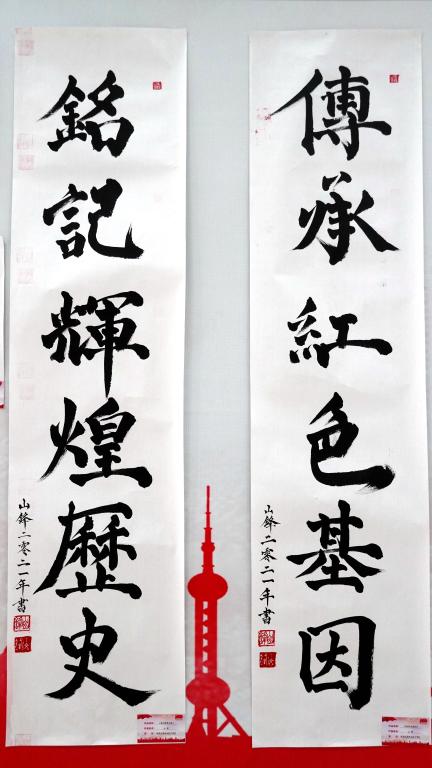 傳承紅色基因
山鋒二零二一年書
銘記輝煌歷史
山鋒二零二一年書